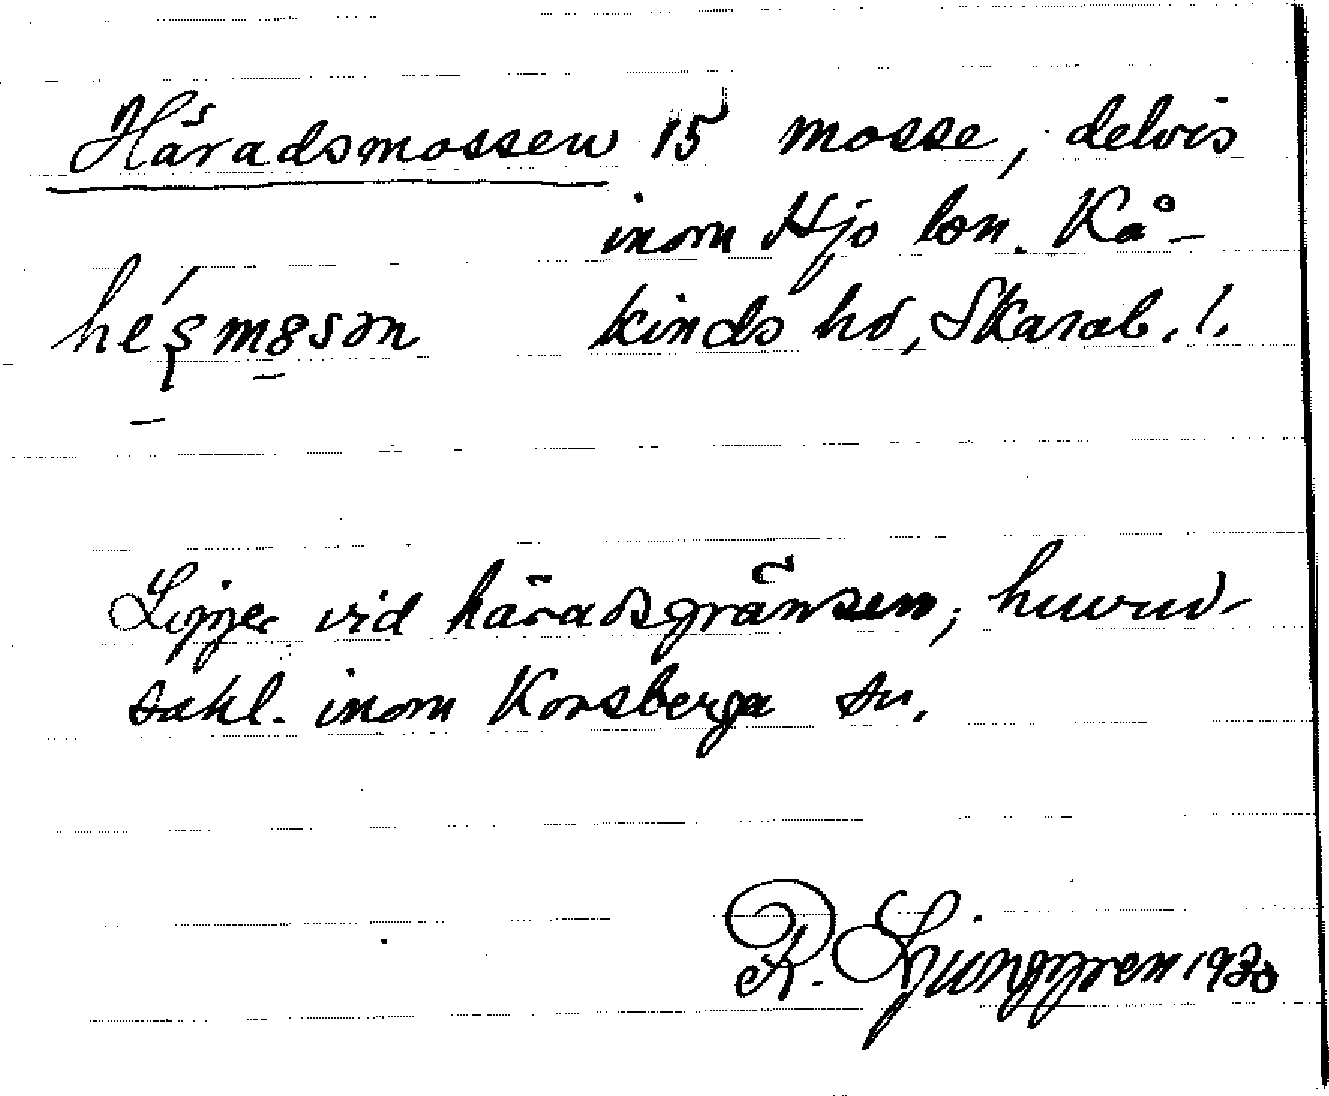 Häradsmossen 15 mosse, delvis
inom Hjo lsn. Kå-
kinds hd, Skarab. l.
Ligger vid häradsgränsen, huvud-
sakl. inom Korsberga sn.
R. Ljunggren 1930